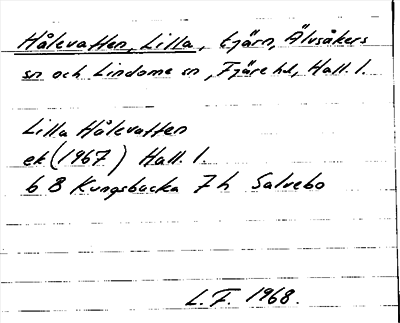 Hålevatten, Lilla, tjärn, Älvsåkers
sn och Lindome sn, Fjäre hd, Hall. l.
Lilla Hålevatten
ek (1967) Hall. l.
6 B Kungsbacka 7 h Salvebo
L. F. 1968.